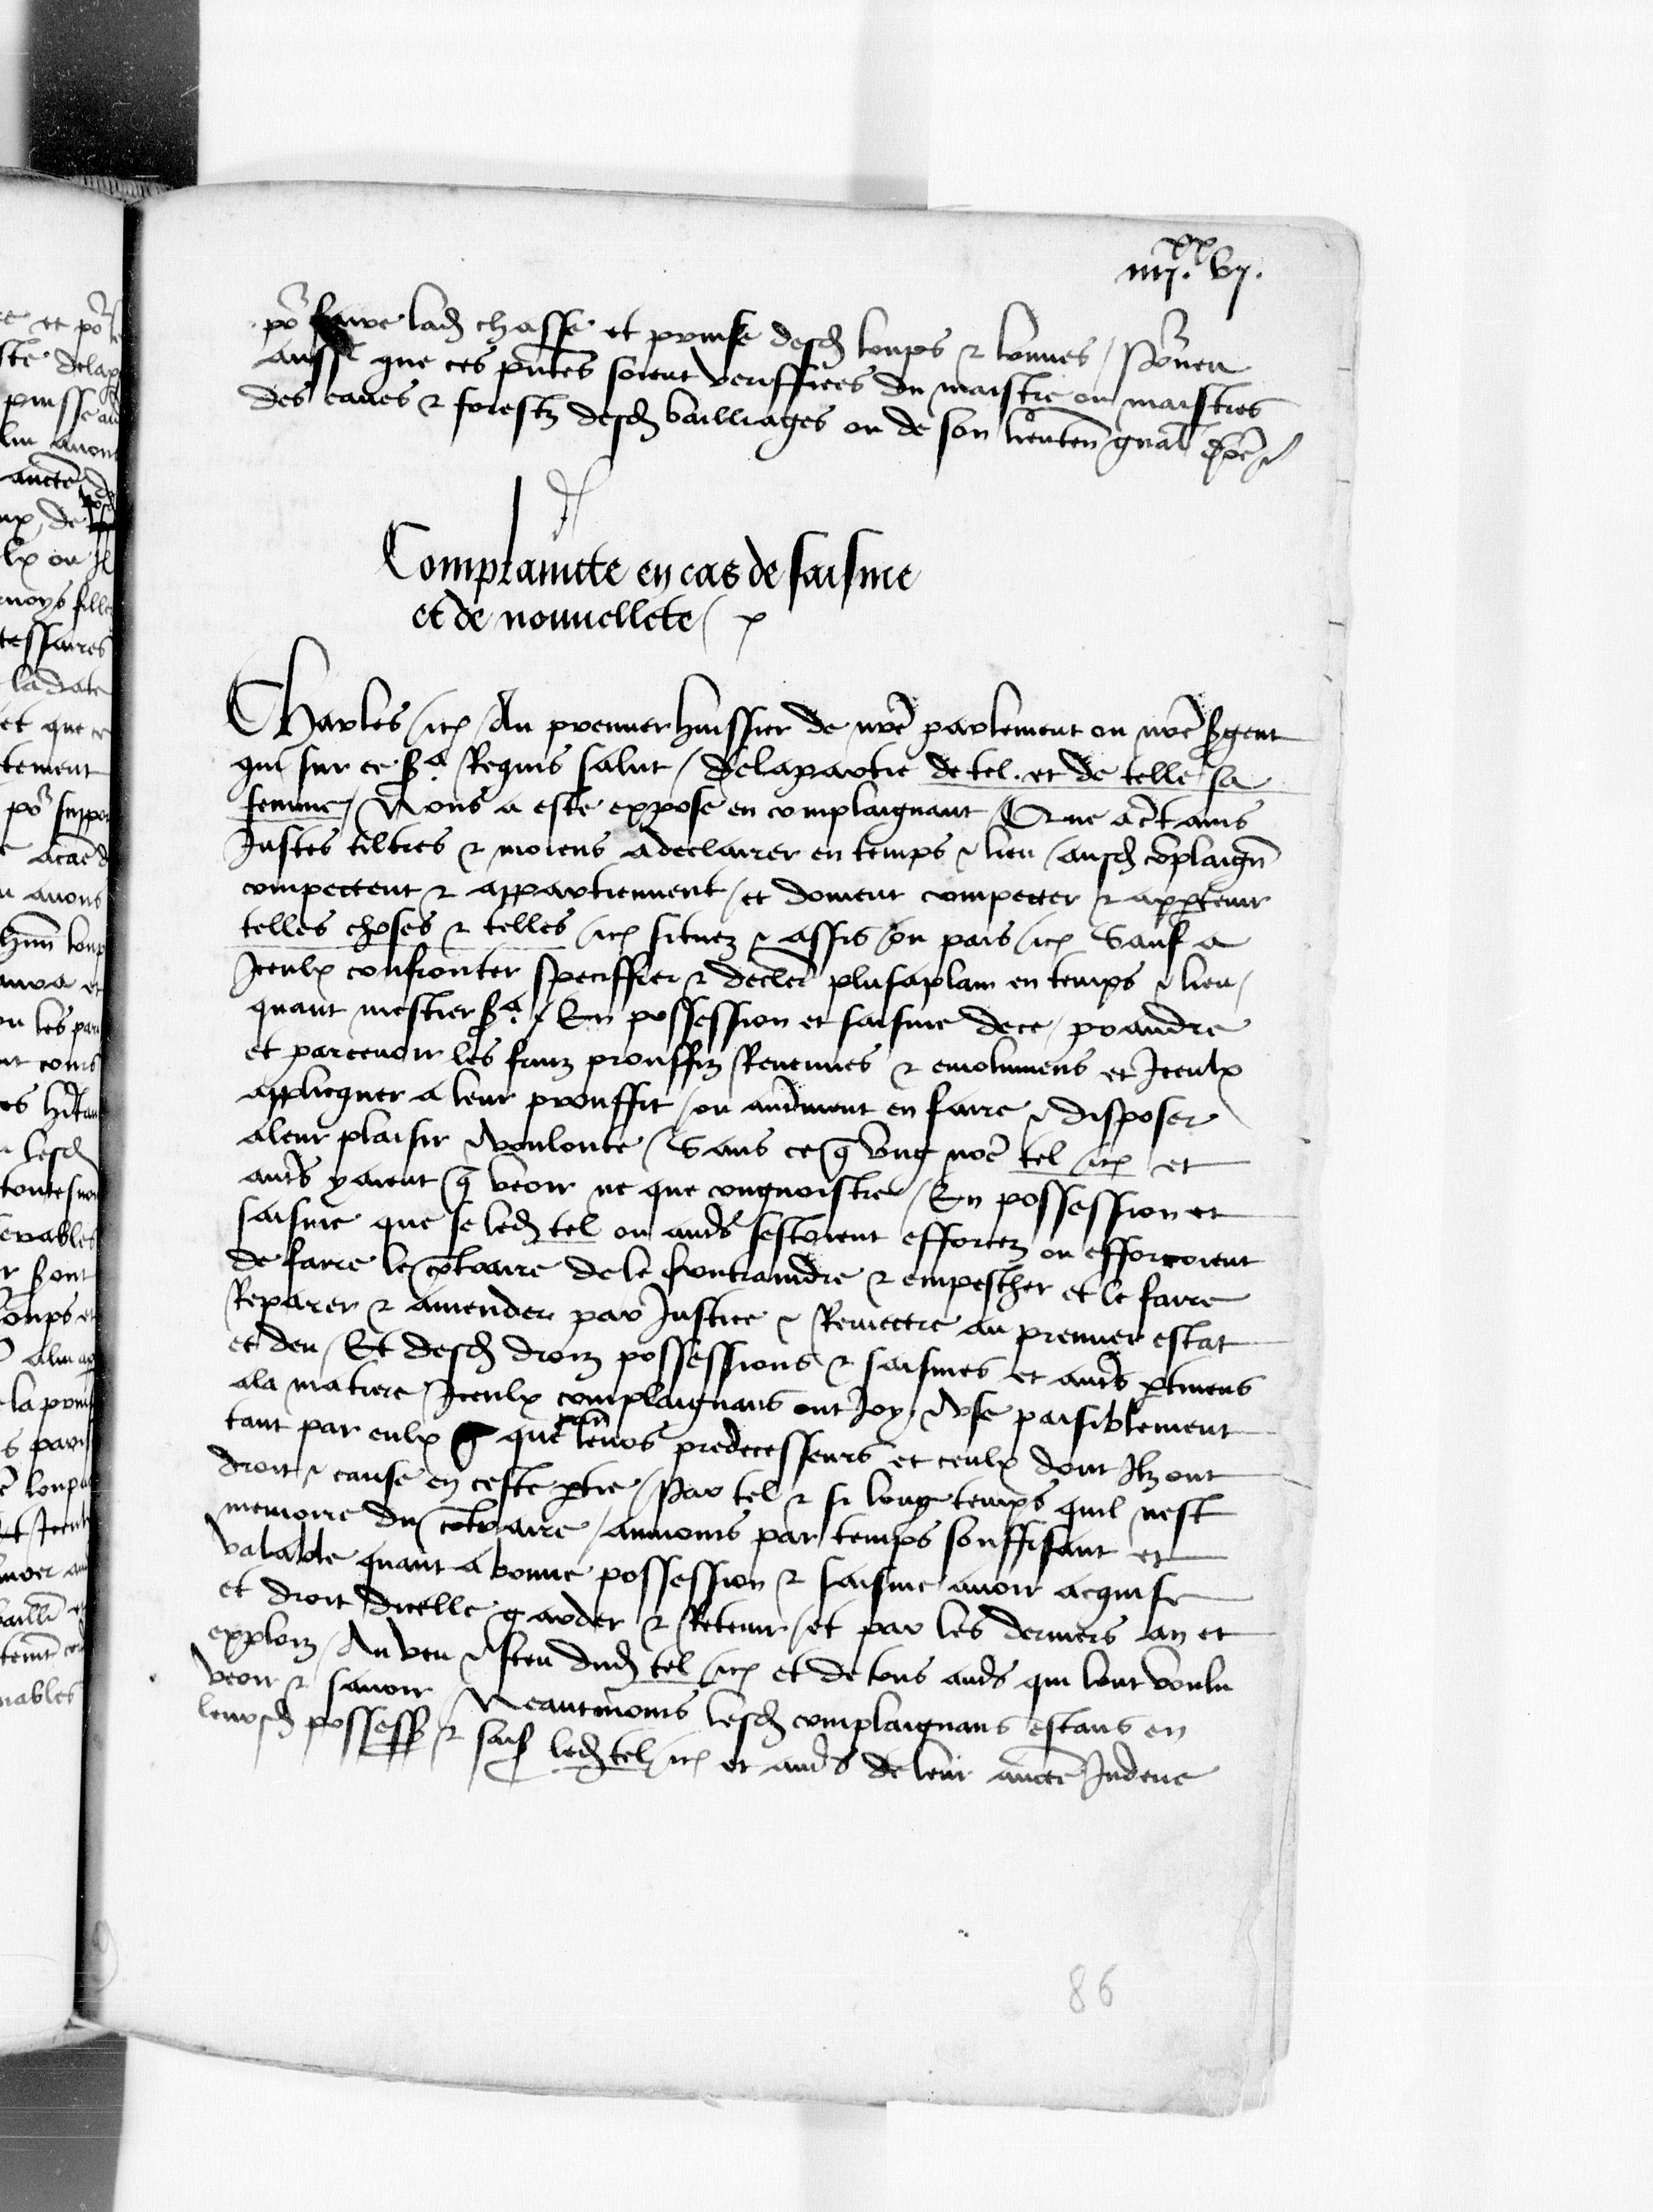 iiii.xx vj.
po~ faire lad~ chasse et prinse desd~ loups & louves / Pourveu
aussi que ces p~ntes soient veriffiees du maistre ou maistres
des eaues & forestz desd~ bailliages ou de son lieuten~ gn~al
Complaincte en cas de saisine
et de nouvellete /
Charles / etc~ / Au premier huissier de n~re parlement ou n~re s~gent
qui sur ce s~a Requis salut / Delapartie de tel. et de telle sa
femme / Nous a este expose en complaignant / Que a c~t ains
Justes tiltres & moiens adeclairer en temps & lieu / ausd~ co~plaign~
compectent & appartiennent / et doivent compecter & app~tenir
telles choses & telles / etc~ situez & assis ou pais / etc~ Sauf a
Iceulx confronter speciffier & decler~ plus aplain en temps & lieu /
quant mestier s~a / En possession et saisine de ce / prandre
et parcevoir les fruiz prouffiz Revenues & emolumens et Iceulx
applicquer a leur prouffit / ou autr~ment en faire & disposer
aleur plaisir & voulonte / Sans ce q~ ung no~e tel / etc~ et
autr~s y aient q~ veoir ne que congnoistre / En possession et
saisine que se led~ tel ou autr~s sestoient efforcez ou efforcoient
de faire le co~traire de le contraindre & empescher et le faire
Reparer & amender par Justice & Remectre au premier estat
et deu / Et desd~ droiz possessions & saisines et autr~s p~tinens
ala matiere / Iceulx complaignans ont Joy & use paisiblement
tant par eulx que leurs predecesseurs et ceulx dont Ilz ont
droit & cause en ceste p~tie / Par tel & si long temps quil nest
memoire du co~traire / aumoins par temps souffisant et
valable quant a bonne possession & saisine avoir acquise
et droit dicelle garder & Retenir / et par les derniers an et
exploiz / Au veu & sceu dud~ tel / etc~ et de tous autr~s qui lont voulu
veoir & savoir / Neantmoins lesd~ complaignans estans en
leursd~ possess~ & sais~ led~ tel / etc~ et autr~s de leur aucte~ Indeue
86